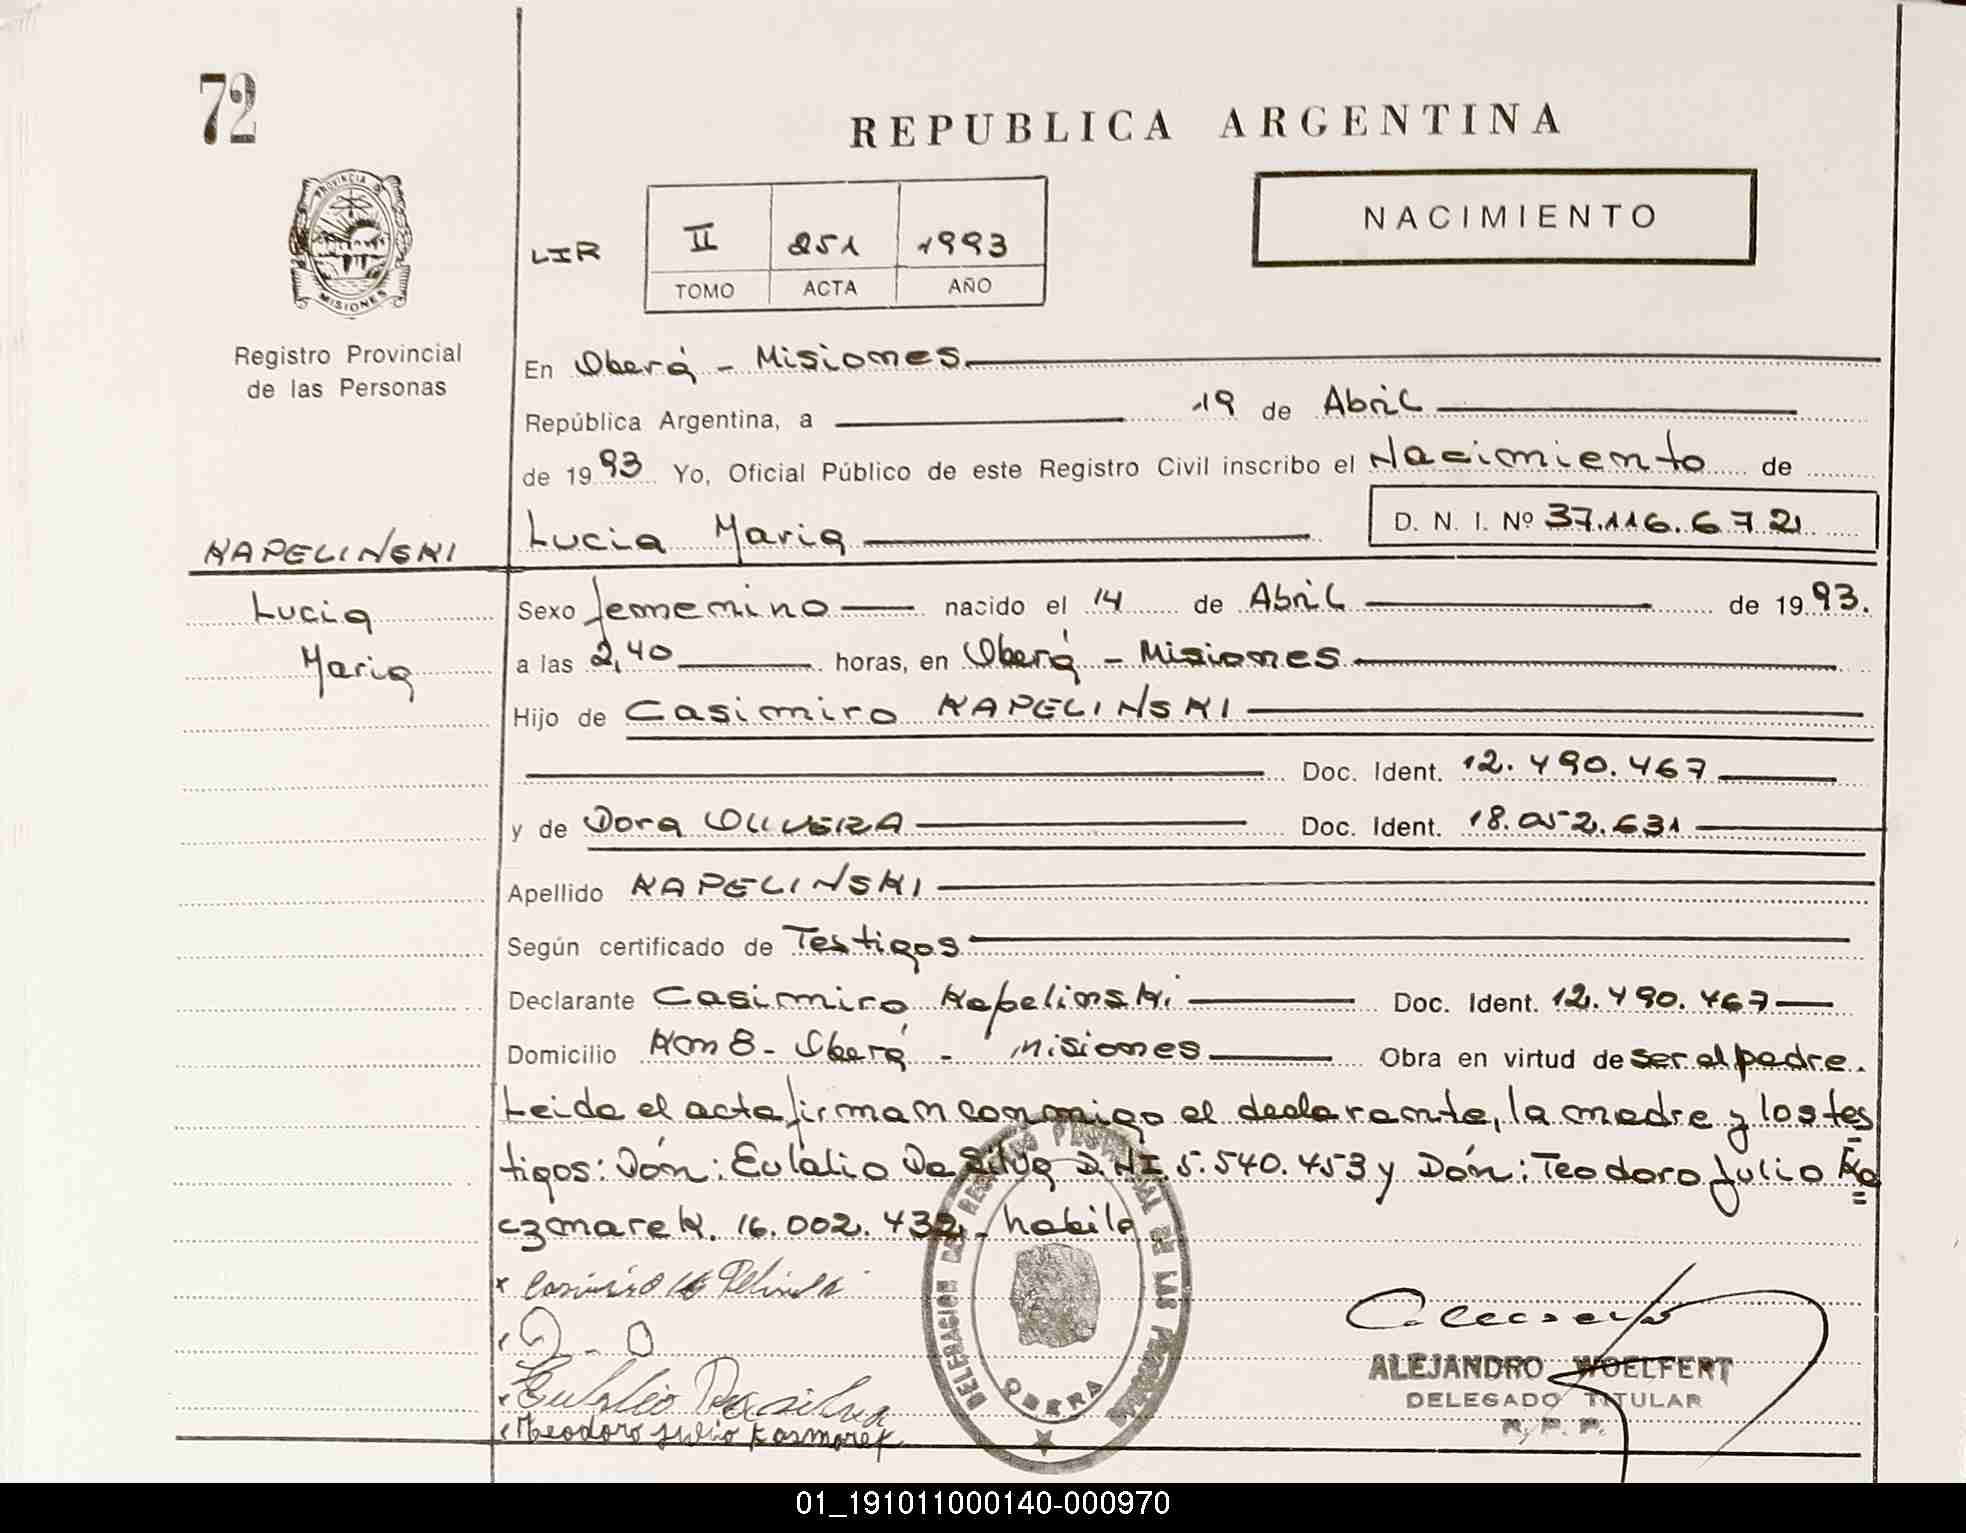 72
REPUBLICA ARGENTINA
PROVINCIA D
MISIONES
Registro Provincial
de las Personas
NACIMIENTO
LIR
II 251 1993
TOMO ACTA AÑO
En Oberá - Misiones
República Argentina, a 19 de Abril
de 1993 Yo, Oficial Público de este Registro Civil inscribo el Nacimiento de
KAPELINSKI Lucia Maria D. N. I. Nº 37.116.672
Lucia
Maria
Sexo femenino nacido el 14 de Abril de 1993.
a las 2,40 horas, en Oberá - Misiones
Hijo de Casimiro KAPELINSKI
Doc. Ident. 12.490.467
y de Dora OLIVEIRA Doc. Ident. 18.052.631
Apellido KAPELINSKI
Según certificado de Testigos
Declarante Casimiro Kapelinski Doc. Ident. 12.490.467
Domicilio Km 8 - Oberá - Misiones Obra en virtud de ser el padre.
Leida el acta firman conmigo el declarante, la madre y los tes
tigos: Dón: Eulalio Da Silva D.NI. 5.540.453 y Dón: Teodoro Julio Ka
czmarek. 16.002.432 - habila
DELEGACION DEL REGISTRO PROVINCIAL DE LAS PERSONAS
OBERA
x Casimiro Kapelinski
Eulalio Da silva
Teodoro Julio Kosmarek
ALEJANDRO WOELFERT
DELEGADO TITULAR
R. P. P.
01_191011000140-000970